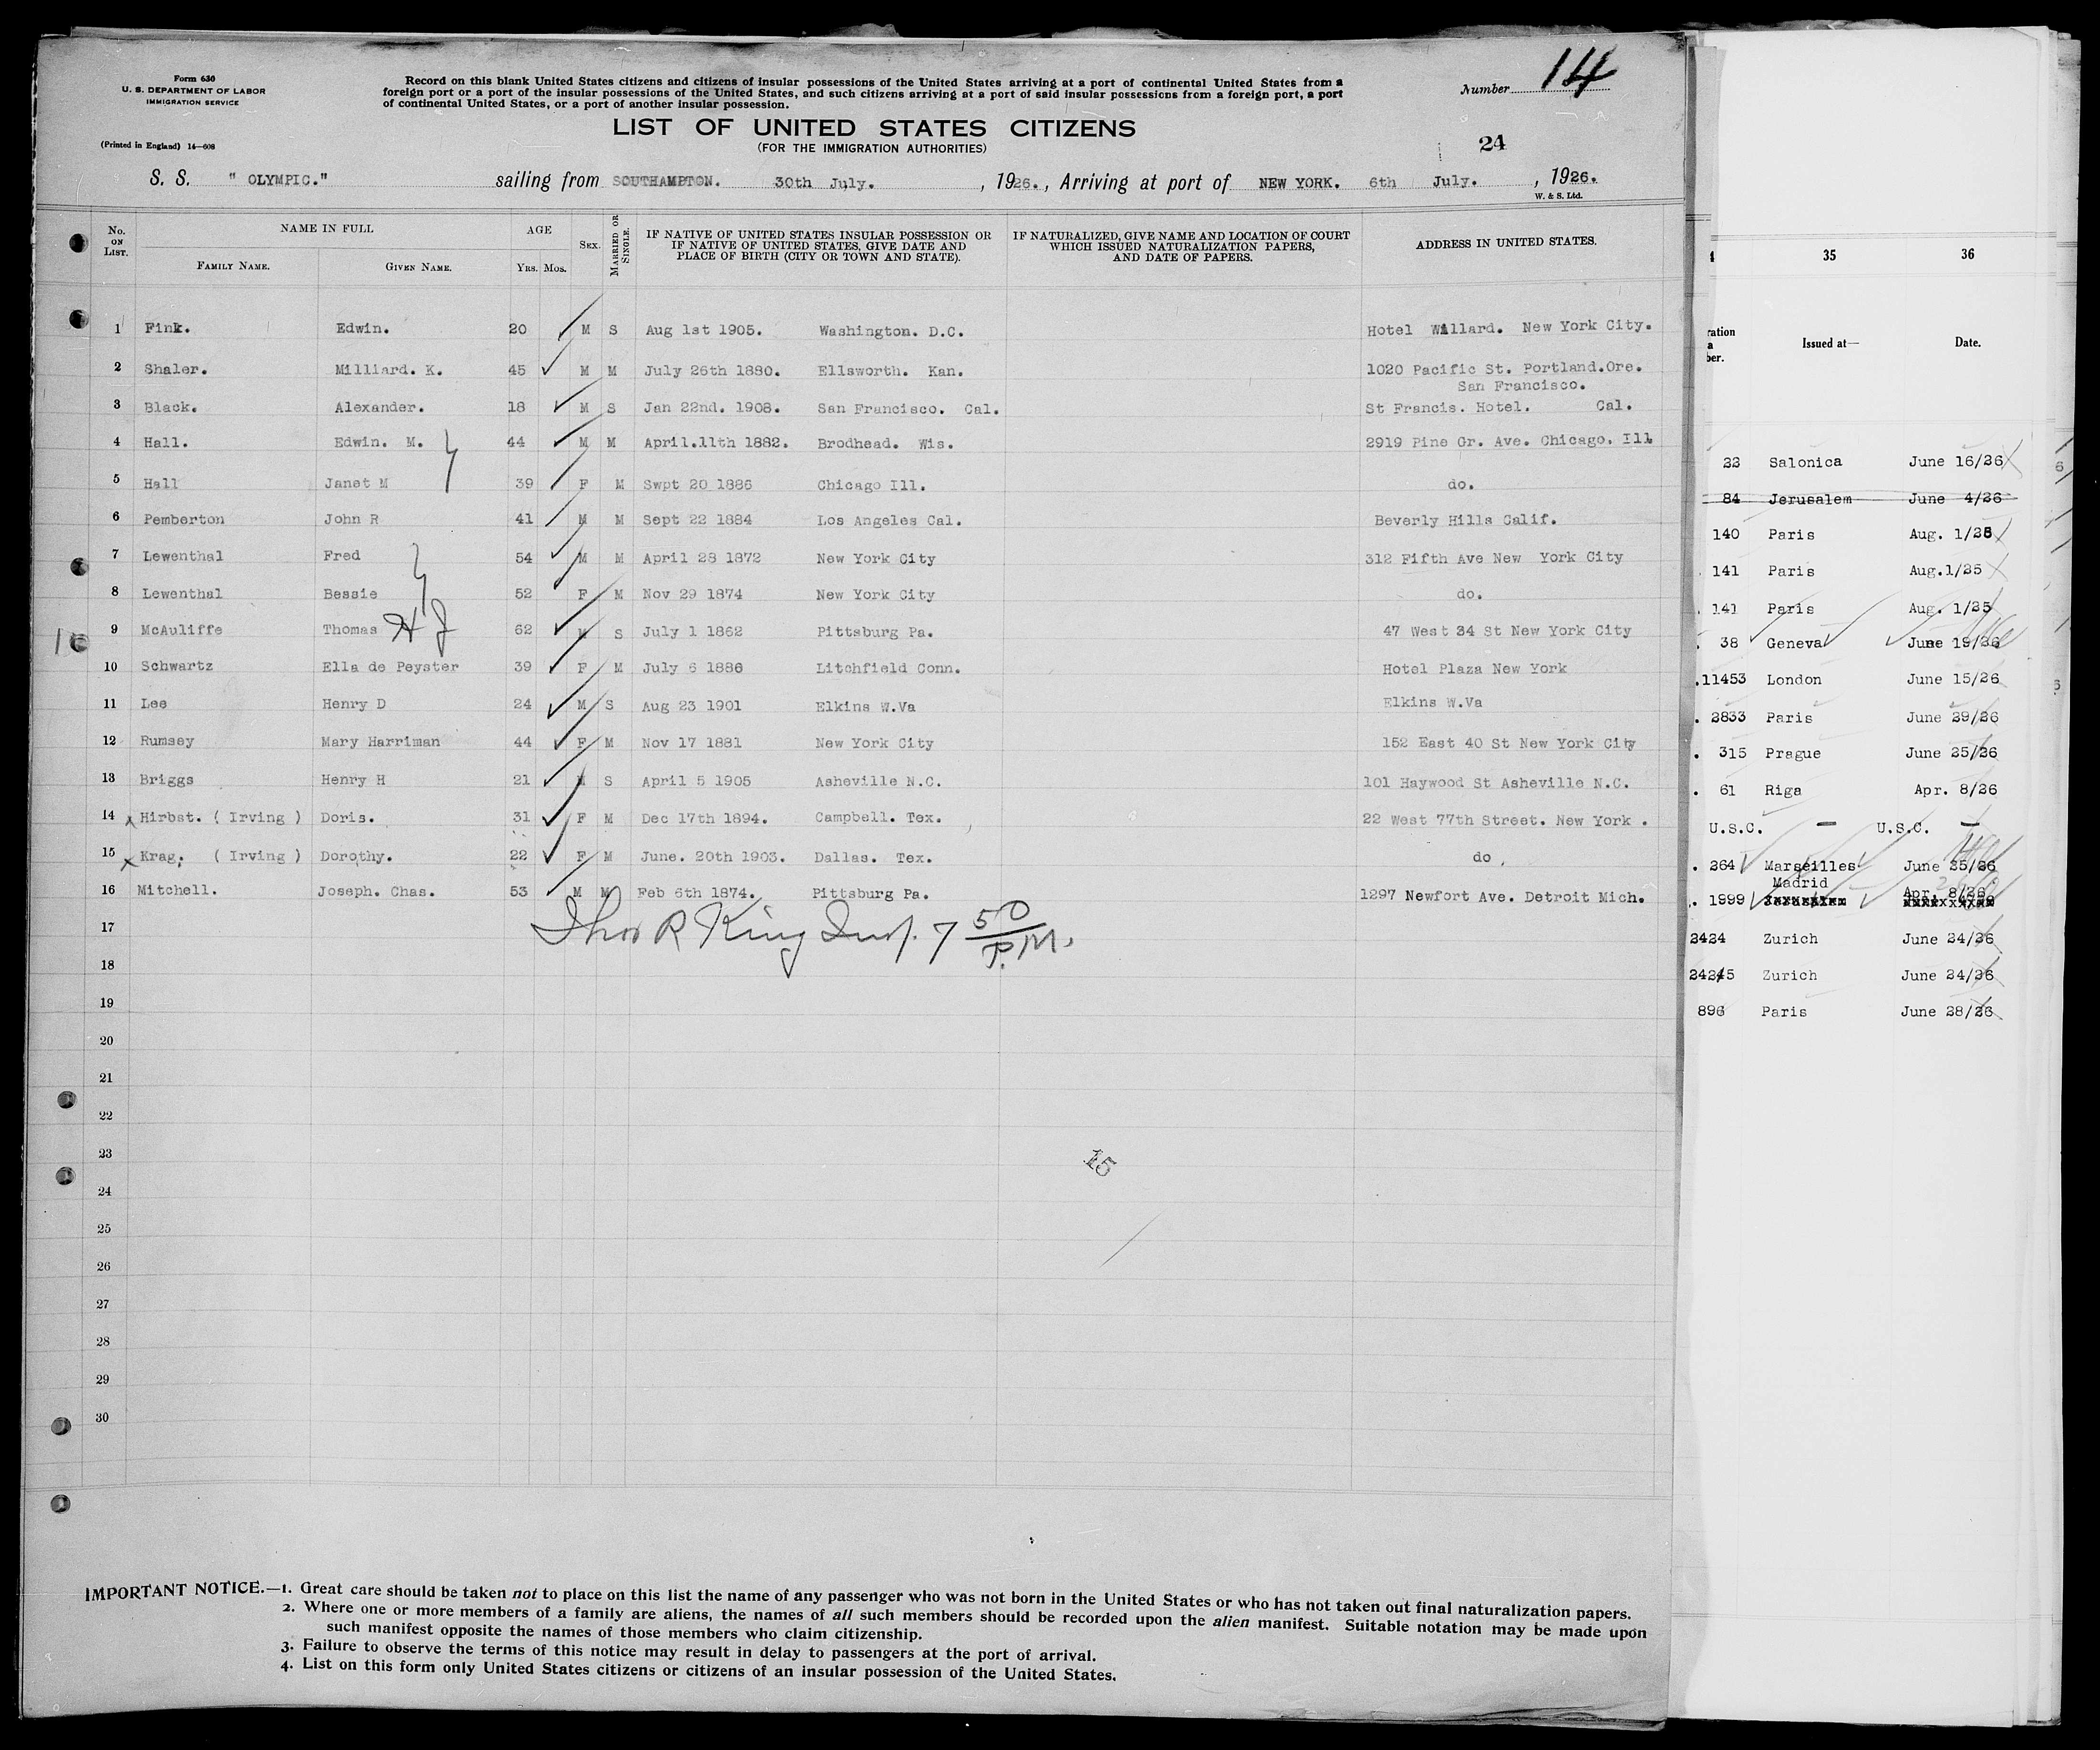 Form 630
U. S. DEPARTMENT OF LABOR
IMMIGRATION SERVICE
(Printed in England) 14—608
Record on this blank United States citizens and citizens of insular possessions of the United States arriving at a port of continental United States from a
foreign port or a port of the insular possessions of the United States, and such citizens arriving at a port of said insular possessions from a foreign port, a port
of continental United States, or a port of another insular possession.
Number 14
LIST OF UNITED STATES CITIZENS
(FOR THE IMMIGRATION AUTHORITIES)
24
S. S. " OLYMPIC." sailing from SOUTHAMPTON. 30th July. , 1926., Arriving at port of NEW YORK. 6th July. , 1926.
W. & S. Ltd.
No. ON LIST.
NAME IN FULL
FAMILY NAME.
GIVEN NAME.
AGE
YRS. MOS.
SEX.
MARRIED OR SINGLE.
IF NATIVE OF UNITED STATES INSULAR POSSESSION OR
IF NATIVE OF UNITED STATES, GIVE DATE AND
PLACE OF BIRTH (CITY OR TOWN AND STATE).
IF NATURALIZED, GIVE NAME AND LOCATION OF COURT
WHICH ISSUED NATURALIZATION PAPERS,
AND DATE OF PAPERS.
ADDRESS IN UNITED STATES.
1 Fink. Edwin. 20 M S Aug 1st 1905. Washington. D.C. Hotel Willard. New York City.
2 Shaler. Milliard. K. 45 M M July 26th 1880. Ellsworth. Kan. 1020 Pacific St. Portland.Ore.
San Francisco.
3 Black. Alexander. 18 M S Jan 22nd. 1908. San Francisco. Cal. St Francis. Hotel. Cal.
4 Hall. Edwin. M. 44 M M April.11th 1882. Brodhead. Wis. 2919 Pine Gr. Ave. Chicago. Ill
5 Hall Janet M 39 F M Swpt 20 1886 Chicago Ill. do.
6 Pemberton John R 41 M M Sept 22 1884 Los Angeles Cal. Beverly Hills Calif.
7 Lewenthal Fred 54 M M April 28 1872 New York City 312 Fifth Ave New York City
8 Lewenthal Bessie 52 F M Nov 29 1874 New York City do.
9 McAuliffe Thomas H J 62 M S July 1 1862 Pittsburg Pa. 47 West 34 St New York City
10 Schwartz Ella de Peyster 39 F M July 6 1886 Litchfield Conn. Hotel Plaza New York
11 Lee Henry D 24 M S Aug 23 1901 Elkins W.Va Elkins W.Va
12 Rumsey Mary Harriman 44 F M Nov 17 1881 New York City 152 East 40 St New York City
13 Briggs Henry H 21 M S April 5 1905 Asheville N.C. 101 Haywood St Asheville N.C.
14 x Hirbst. ( Irving ) Doris. 31 F M Dec 17th 1894. Campbell. Tex. 22 West 77th Street. New York .
15 x Krag. ( Irving ) Dorothy. 22 F M June. 20th 1903. Dallas. Tex. do .
16 Mitchell. Joseph. Chas. 53 M M Feb 6th 1874. Pittsburg Pa. 1297 Newfort Ave. Detroit Mich.
17 Thos R King Insp. 7 50 P.M.
18
19
20
21
22
23
15
24
25
26
27
28
29
30
IMPORTANT NOTICE.—1. Great care should be taken not to place on this list the name of any passenger who was not born in the United States or who has not taken out final naturalization papers.
2. Where one or more members of a family are aliens, the names of all such members should be recorded upon the alien manifest. Suitable notation may be made upon
such manifest opposite the names of those members who claim citizenship.
3. Failure to observe the terms of this notice may result in delay to passengers at the port of arrival.
4. List on this form only United States citizens or citizens of an insular possession of the United States.
35 36
Issued at— Date.
22 Salonica June 16/26
84 Jerusalem June 4/26
140 Paris Aug. 1/25
141 Paris Aug.1/25
141 Paris Aug. 1/25
38 Geneva June 19/26
.11453 London June 15/26
. 2833 Paris June 29/26
. 315 Prague June 25/26
. 61 Riga Apr. 8/26
U.S.C. — U.S.C. —
. 264 Marseilles June 25/26
Madrid Apr. 8/26
. 1999
2424 Zurich June 24/26
24245 Zurich June 24/26
896 Paris June 28/26